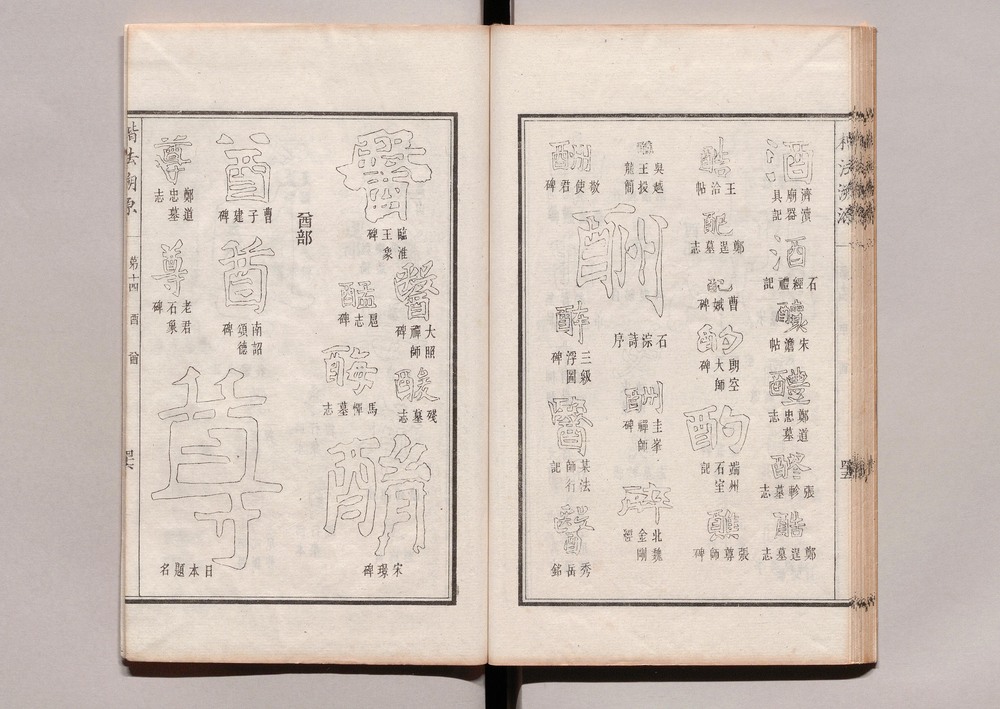 酒
濟瀆
廟器
具記
酒
石經禮記
宋儋帖
醴
鄭道
忠墓
志
張軫墓志
酷
鄭逞墓志
酷
王洽帖
配
鄭逞墓志
配
曹娥碑
酌
朗空
大師
碑
酌
端州
石室
記
醮
張尊師碑
吳越
王投
龍簡
酬
石淙詩序
酬
圭峯
禪師
碑
醉
北魏
金剛
經
酬
敬使君碑
醉
三級
浮圖
碑
醫
某法
師行
記
醫
秀岳銘
釁
臨淮
王象
碑
醫
大照
禪師
碑
酸
殘墓志
醖
扈志碑
馬惲墓志
宋璟碑
酋部
酋
曹子建碑
酋
南詔
頌德
碑
尊
日本題名
尊
鄭道
忠墓
志
尊
老君
石象
碑
楷法溯源
第十四
酉
酋